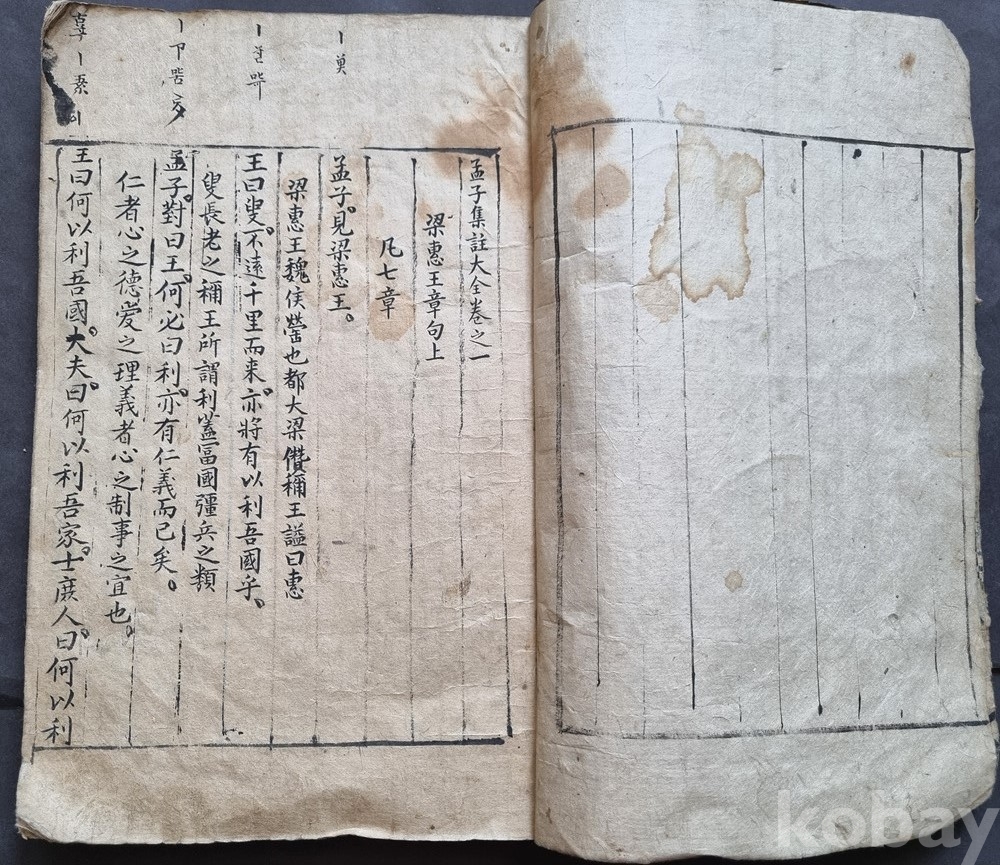 孟子集註大全卷之一
梁惠王章句上
凡七章
孟子。見梁惠王。
梁惠王魏侯罃也都大梁僭稱王謚曰惠
王曰叟。不遠千里而来。亦將有以利吾國乎。
叟長老之稱王所謂利蓋富國彊兵之類
孟子。對曰王。何必曰利。亦有仁義而已矣。
仁者心之德愛之理義者心之制事之宜也。
王曰何以利吾國。大夫。曰何以利吾家。士庶人。曰何以利
kobay